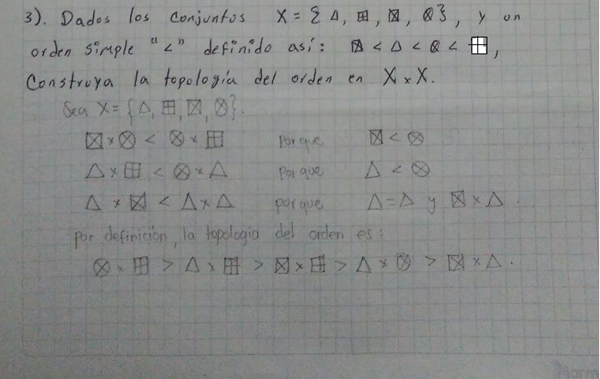 3). Dados los conjuntos X = {△, ⊞, ⊠, ⊗}, y un
orden simple "<" definido así: ⊠ < △ < ⊗ < ⊞,
Construya la topología del orden en X×X.
Sea X = {△, ⊞, ⊠, ⊗}.
⊠×⊗ < ⊗×⊞ porque ⊠ < ⊗
△×⊞ < ⊗×△ porque △ < ⊗
△×⊠ < △×△ porque △=△ y ⊠×△.
por definición, la topología del orden es:
⊗×⊞ > △×⊞ > ⊠×⊞ > △×⊗ > ⊠×△.